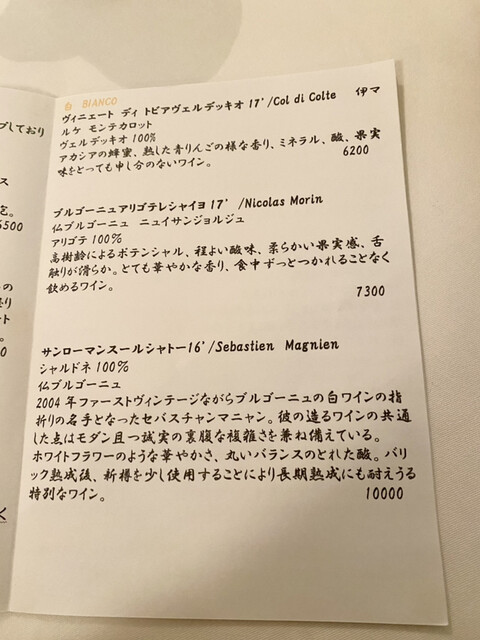 プしており
ス
定。
6500
の
り
ート
0
く
白 BIANCO
ヴィニェート ディ トビアヴェルデッキオ 17’/Col di Colte 伊マ
ルケ モンテカロット
ヴェルデッキオ 100%
アカシアの蜂蜜、熟した青りんごの様な香り、ミネラル、酸、果実
味をとっても申し分のないワイン。 6200
ブルゴーニュアリゴテレシャイヨ 17’ /Nicolas Morin
仏ブルゴーニュ ニュイサンジョルジュ
アリゴテ 100%
高樹齢によるポテンシャル、程よい酸味、柔らかい果実感、舌
触りが滑らか。とても華やかな香り、食中ずっとつかれることなく
飲めるワイン。
7300
サンローマンスールシャトー16’/Sebastien Magnien
シャルドネ 100%
仏ブルゴーニュ
2004 年ファーストヴィンテージながらブルゴーニュの白ワインの指
折りの名手となったセバスチャンマニャン。彼の造るワインの共通
した点はモダン且つ誠実の裏腹な複雑さを兼ね備えている。
ホワイトフラワーのような華やかさ、丸いバランスのとれた酸。バリ
ック熟成後、新樽を少し使用することにより長期熟成にも耐えうる
特別なワイン。 10000